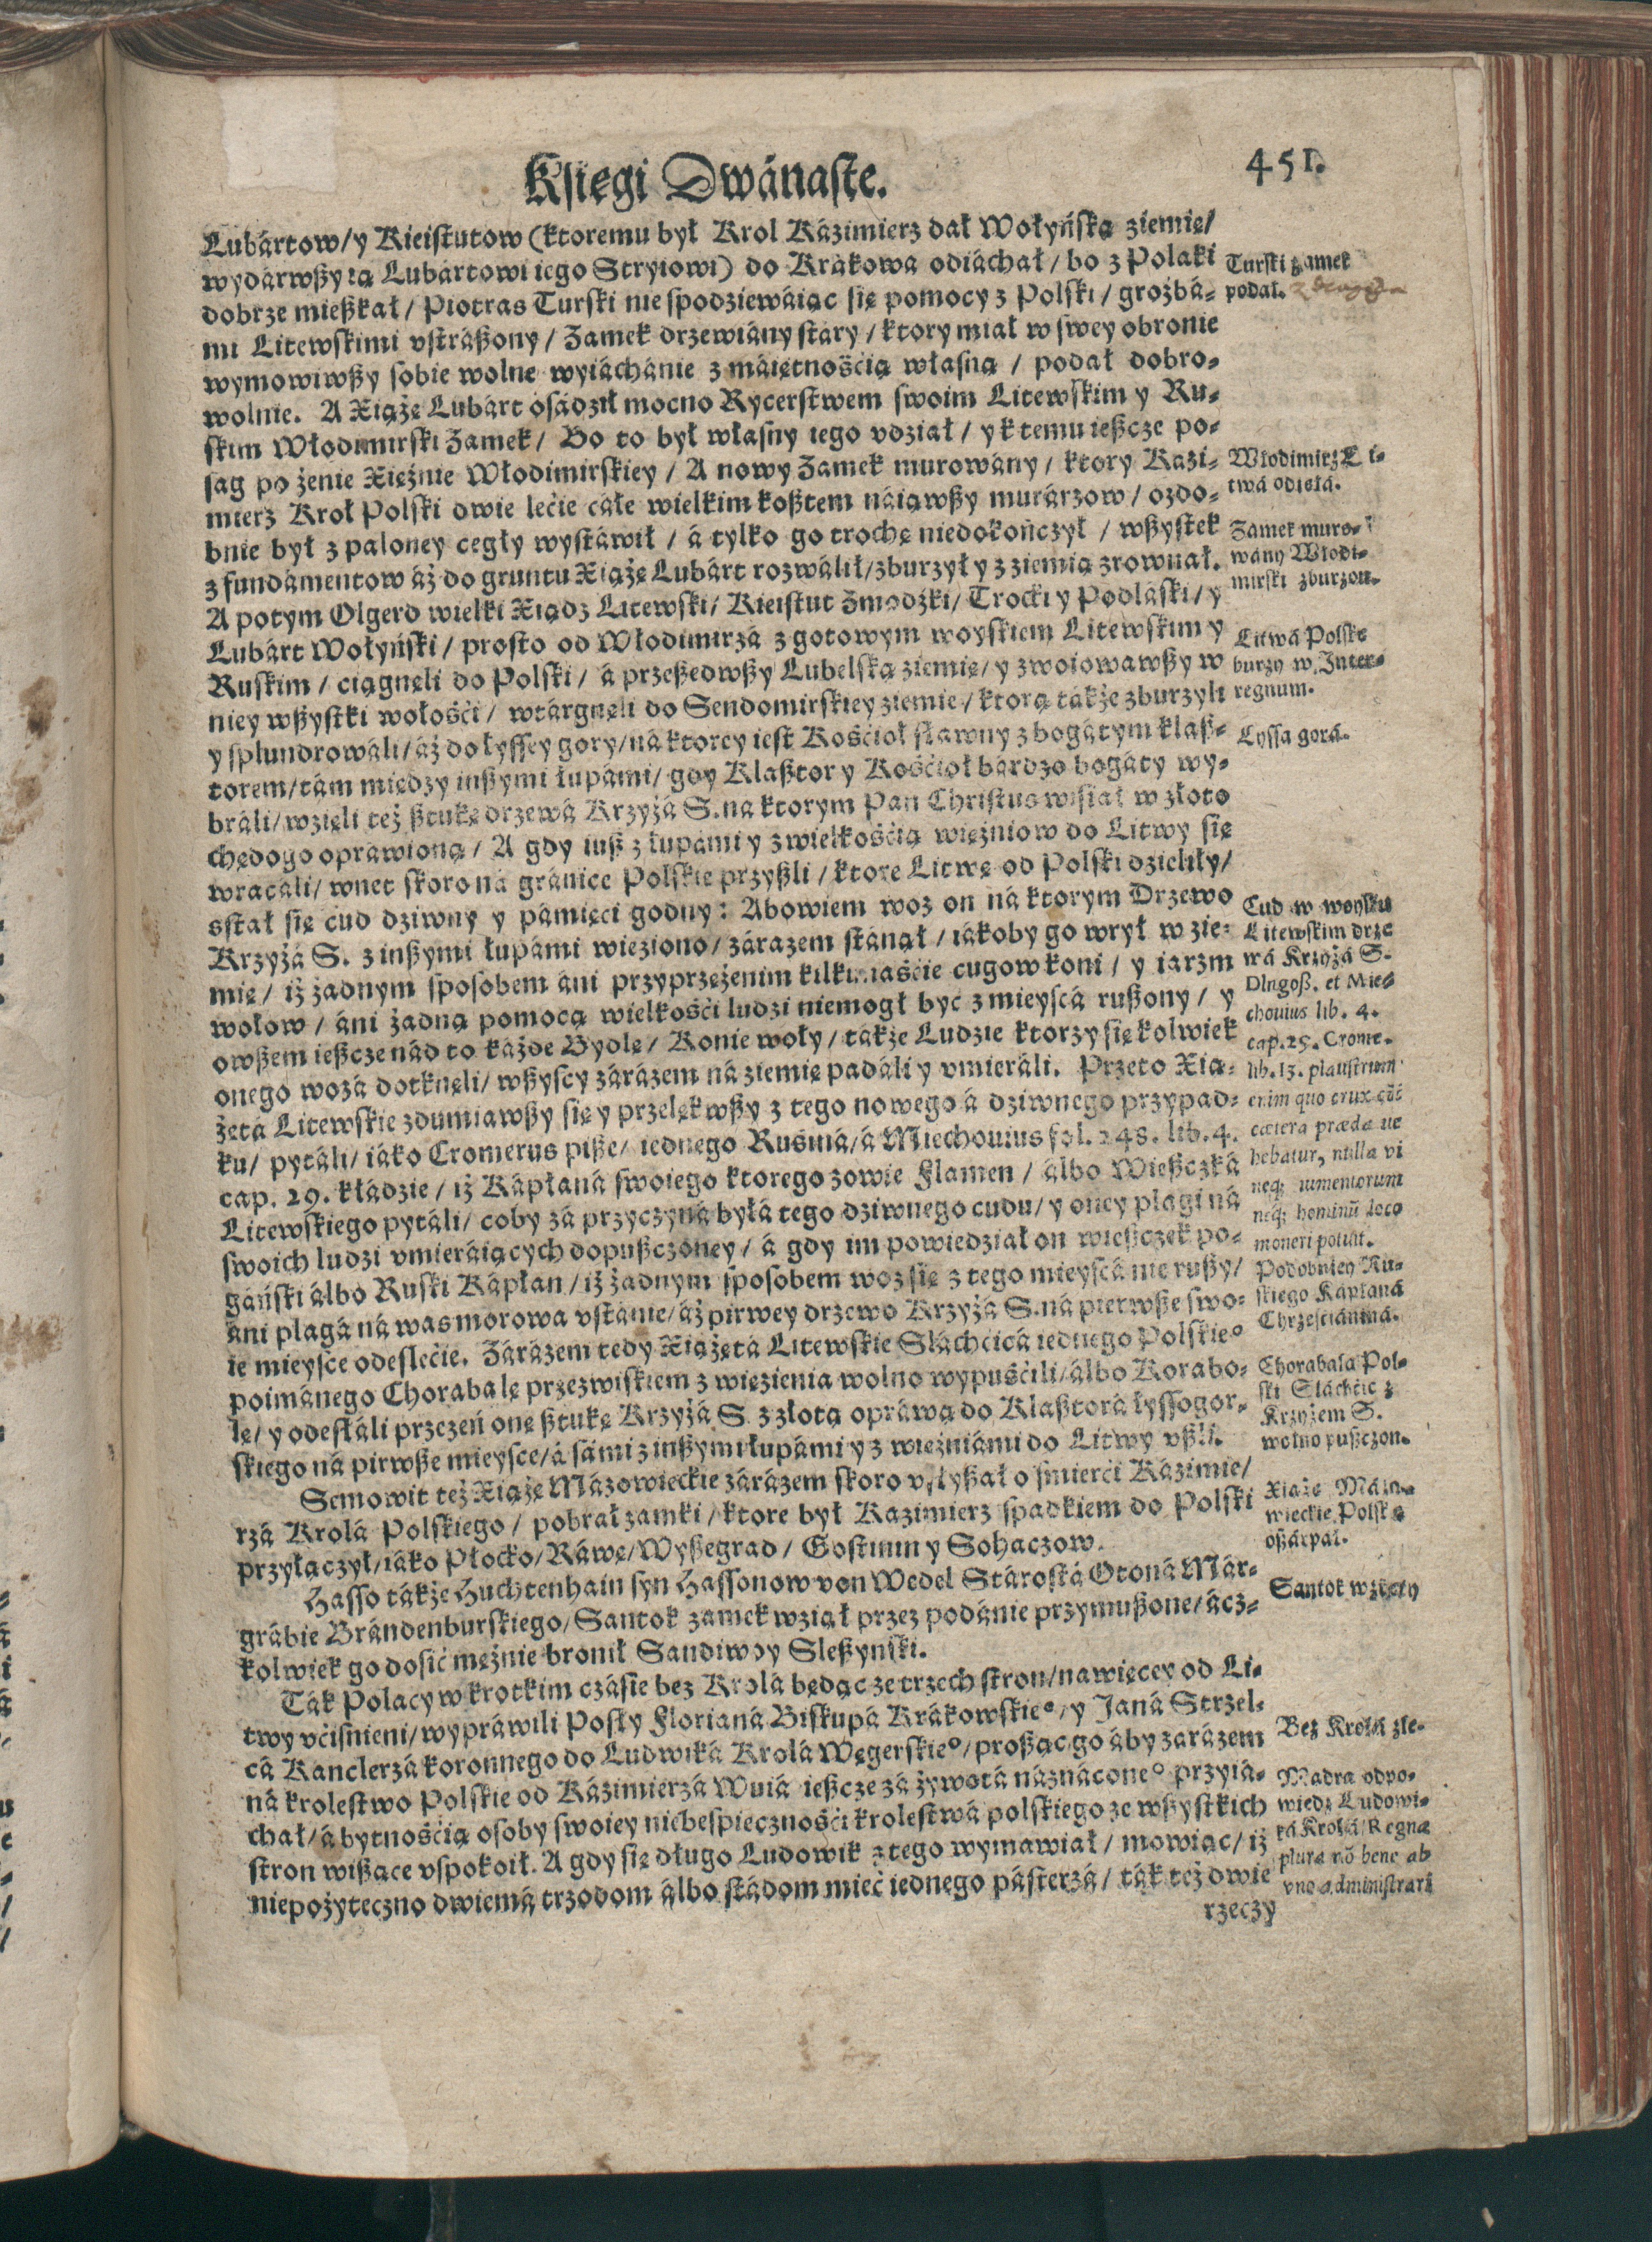 Księgi Dwánaste.
451.
Lubártow/ y Kieistutow (ktoremu był Krol Kázimierz dał Wołyńską ziemię/
wydárwßy ią Lubártowi iego Stryiowi) do Krákowá odiáchał/ bo z Polaki
dobrze mießkał/ Piotras Turski nie spodziewáiąc się pomocy z Polski/ groźbá-
mi Litewskimi vstráßony/ Zamek drzewiány stáry/ ktory miał w swey obronie
wymowiwßy sobie wolne wyiáchánie z máiętnośćią własną/ podał dobro-
wolnie. A Xiążę Lubárt osádził mocno Rycerstwem swoim Litewskim y Ru-
skim Włodimirski Zamek/ Bo to był własny iego vdział/ y k temu ießcze po-
sag po żenie Xiężnie Włodimirskiey/ A nowy Zamek murowány/ ktory Kazi-
mierz Krol Polski dwie lećie cáłe wielkim koßtem náiąwßy murárzow/ ozdo-
bnie był z paloney cegły wystáwił/ á tylko go trochę niedokończył/ wßystek
z fundámentow áż do gruntu Xiążę Lubárt rozwálił/ zburzył y z ziemią zrownał.
A potym Olgerd wielki Xiądz Litewski/ Kieistut Zmodzki/ Trocki y Podláski/ y
Lubárt Wołyński/ prosto od Włodimirzá z gotowym woyskiem Litewskim y
Ruskim/ ciągnęli do Polski/ á przeßedwßy Lubelską ziemię/ y zwoiowawßy w
niey wßystki wołośći/ wtárgnęli do Sendomirskiey ziemie/ ktorą tákże zburzyli
y splundrowáli/ áż do łyssey gory/ ná ktorey iest Kośćioł sławny z bogátym klaß-
torem/ tám między inßymi łupámi/ gdy Klaßtor y Kośćioł bárdzo bogáty wy-
bráli/ wzięli też ßtukę drzewá Krzyżá S. na ktorym Pan Christus wisiał w złoto
chędogo opráwioną/ A gdy iuß z łupámi y z wielkośćią więźniow do Litwy się
wracáli/ wnet skoro ná gránice Polskie przyßli/ ktore Litwę od Polski dzieliły/
sstał się cud dziwny y pámięci godny: Abowiem woz on ná ktorym Drzewo
Krzyżá S. z inßymi łupámi wieziono/ zárazem stánął/ iákoby go wrył w zie-
mię/ iż żadnym sposobem áni przyprzężenim kilkunaśćie cugow koni/ y iarzm
wołow/ áni żadną pomocą wielkośći ludzi niemogł być z mieyscá rußony/ y
owßem ießcze nád to káżde Bydlę/ Konie woły/ tákże Ludzie ktorzy się kolwiek
onego wozá dotknęli/ wßyscy zárázem ná ziemię padáli y vmieráli. Przeto Xią-
żętá Litewskie zdumiawßy się y przelękwßy z tego nowego á dziwnego przypad-
ku/ pytáli/ iáko Cromerus piße/ iednego Rusiná/ á Miechouius fol. 248. lib. 4.
cap. 29. kłádzie/ iż Kápłaná swoiego ktorego zowie Flamen/ álbo Wießczká
Litewskiego pytáli/ coby zá przyczyná byłá tego dziwnego cudu/ y oney plagi ná
swoich ludzi vmieráiących dopußczoney/ á gdy im powiedział on wießczek po-
gáński álbo Ruski Kápłan/ iż żadnym sposobem woz się z tego mieyscá nie rußy/
áni plagá ná was morowa vstánie/ áż pirwey drzewo Krzyżá S. ná pierwße swo-
ie mieysce odeślećie. Zárázem tedy Xiążętá Litewskie Sláchćicá iednego Polskieº
poimánego Chorabalę przezwiskiem z więzienia wolno wypuśćili/ álbo Korabo-
lę/ y odesłáli przezeń onę ßtukę Krzyżá S. z złotą opráwą do Klaßtorá łyssogor-
skiego ná pirwße mieysce/ á sámi z inßymi łupámi y z więźniámi do Litwy vßli.
Semowit też Xiążę Mázowieckie zárázem skoro vsłyßał o śmierći Kázimie/
rzá Krolá Polskiego/ pobrał zamki/ ktore był Kazimierz spadkiem do Polski
przyłączył/ iáko Płocko/ Ráwę/ Wyßegrad/ Gostinin y Sohaczow.
Hasso tákże Huchtenhain syn Hassonow von Wedel Stárostá Otoná Már-
grábie Brándenburskiego/ Santok zamek wziął przez podánie przymußone/ ácz-
kolwiek go dosić mężnie bronił Sandiwoy Sleßynski.
Ták Polacy w krotkim czásie bez Krolá będąc ze trzech stron/ nawięcey od Li-
twy vćiśnieni/ wypráwili Posły Florianá Biskupá Krákowskieº/ y Janá Strzel-
cá Kanclerzá koronnego do Ludwiká Krolá Węgerskieº/ proßąc go áby zarázem
ná krolestwo Polskie od Kázimierzá Wuiá ießcze zá żywotá náznáconeº przyiá-
chał/ á bytnośćią osoby swoiey niebespiecznośći krolestwá polskiego ze wßystkich
stron wißące vspokoił. A gdy się długo Ludowik z tego wymawiał/ mowiąc/ iż
niepożyteczno dwiemá trzodom álbo stádom mieć iednego pásterzá/ ták też dwie
rzeczy
Turski zamek
podał.
Włodimirz Li-
twá odięłá.
Zamek muro-
wány Włodi-
mirski zburzon.
Litwá Polskę
burzy w Inter-
regnum.
Lyssa gorá.
Cud w woysku
Litewskim drze
wá Krzyżá S.
Dlugoß. et Mie-
chouius lib. 4.
cap. 29. Crome.
lib. 13. plaustrum
enim quo crux &
cætera præda ue
hebatur, nulla vi
neq; iumentorum
neq; hominũ loco
moueri potuit.
Podobniey Ru-
skiego Kápłaná
Chrześćiániná.
Chorabala Pol-
ski Sláchćic z
Krzyżem S.
wolno pußczon.
Xiążę Mázo-
wieckie Polskę
oßárpał.
Santok wzięty
Bez Krolá źle.
Mądra odpo-
wiedź Ludowi-
ká Krolá/ Regna
plura nõ bene ab
vno administrari